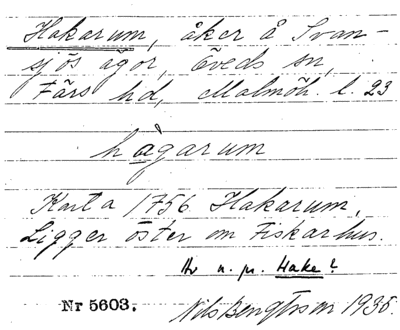 Hakarum, åker å Svan-
sjös ägor, Öveds sn,
Färs hd, Malmöh. l. 23
hågarum
Karta 1756 Hakarum.
Ligger öster om Fiskarhus.
Hake?
Nr 5603.
Nils Bengtsson 1935.